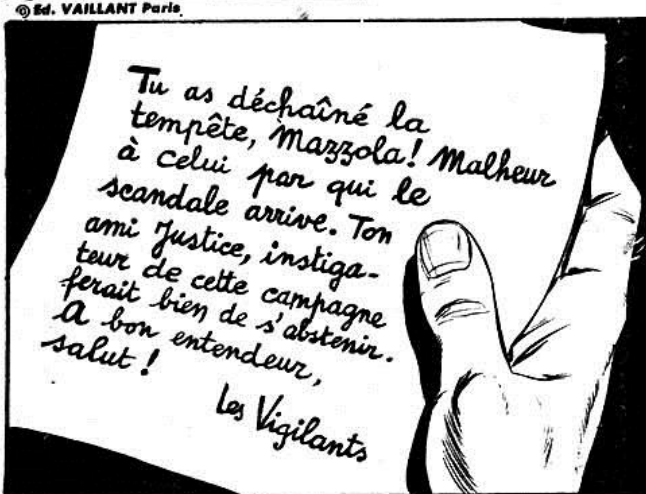 © Ed. VAILLANT Paris
Tu as déchaîné la
tempête, Mazzola ! Malheur
à celui par qui le
scandale arrive. Ton
ami Justice, instiga-
teur de cette campagne
ferait bien de s'abstenir.
A bon entendeur,
salut !
Les Vigilants